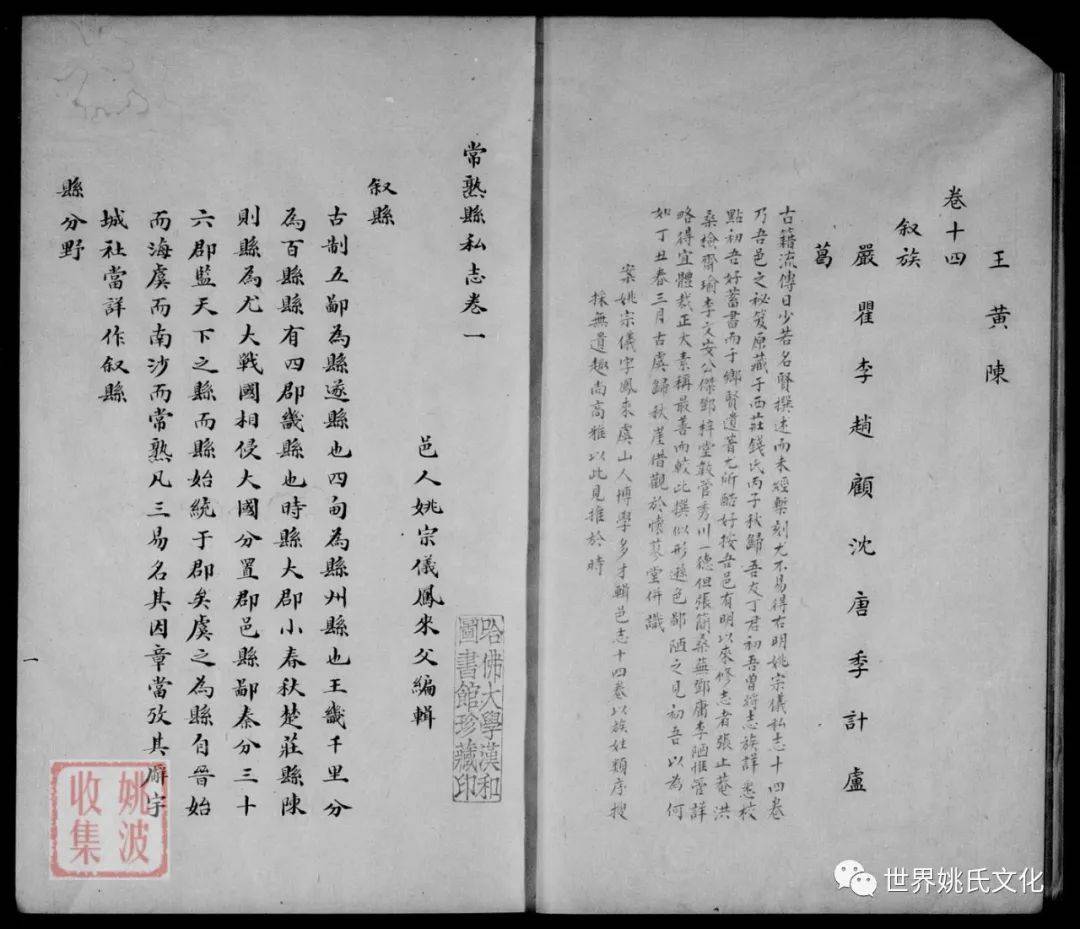 王 黃 陳
卷十四
叙族
嚴 瞿 李 趙 顧 沈 唐 季 計 盧
葛
古籍流傳日少若名賢撰述而未經槧刻尤不易得右明姚宗儀私志十四卷
乃吾邑之秘笈原藏于西莊錢氏丙子秋歸吾友丁君初吾曾將志族詳悉校
點初吾好蓄書而于鄉賢遺著尤所酷好按吾邑有明以來修志者張止菴洪
桑繪齋瑜李文安公傑鄧梓堂韍管秀川一德但張簡桑蕪鄧庸李陋惟管詳
略得宜體裁正大素稱最善而較此撰似形遜色鄙陋之見初吾以為何
如丁丑春三月古虞歸秋崖借觀於懷萱堂併識
案姚宗儀字鳳來虞山人博學多才輯邑志十四卷以族姓類序搜
採無遺趣尚高雅以此見推於時
常熟縣私志卷一
邑人姚宗儀鳳來父編輯
叙縣
古制五鄙為縣遂縣也四甸為縣州縣也王畿千里分
為百縣縣有四郡畿縣也時縣大郡小春秋楚莊縣陳
則縣為尤大戰國相侵大國分置郡邑縣鄙秦分三十
六郡監天下之縣而縣始統于郡矣虞之為縣自晉始
而海虞而南沙而常熟凡三易名其因章當攷其廨宇
城社當詳作叙縣
縣分野
一
哈佛大學漢和
圖書館珍藏印
姚波
收集
世界姚氏文化